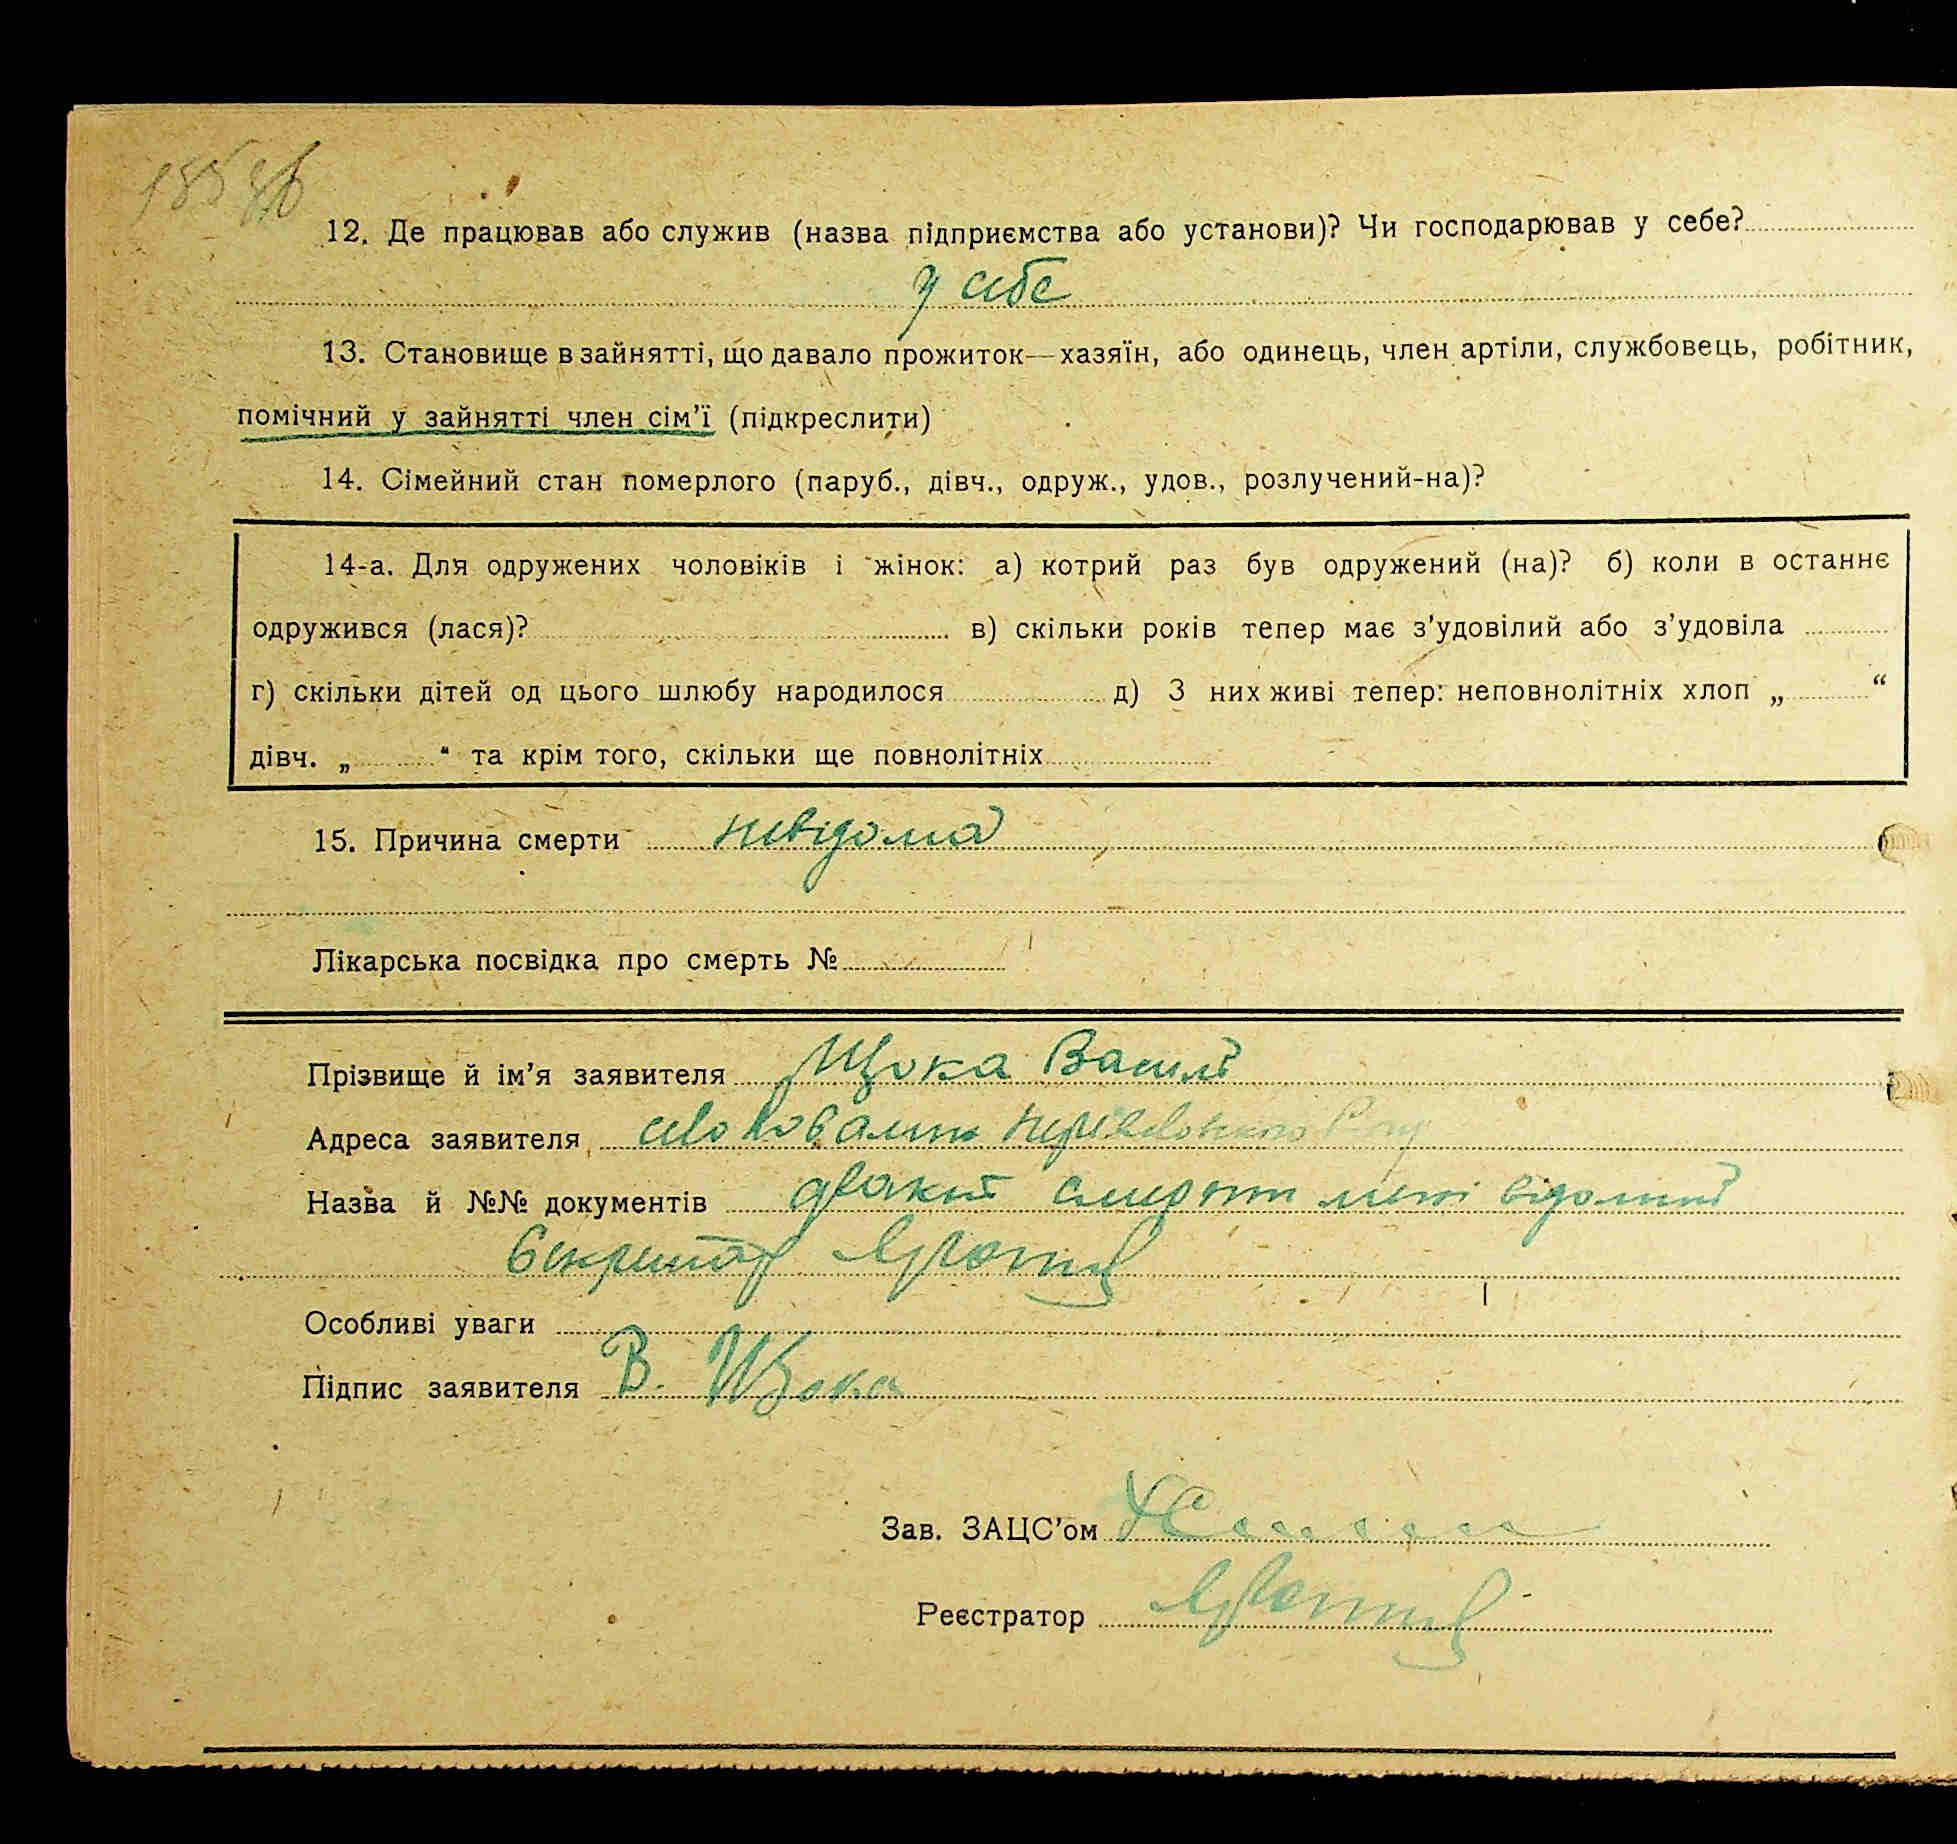 185 зв
12. Де працював або служив (назва підприємства або установи)? Чи господарював у себе?
у себе
13. Становище в зайнятті, що давало прожиток—хазяїн, або одинець, член артіли, службовець, робітник,
помічний у зайнятті член сім’ї (підкреслити)
14. Сімейний стан померлого (паруб., дівч., одруж., удов., розлучений-на)?
14-а. Для одружених чоловіків і жінок: а) котрий раз був одружений (на)? б) коли в останнє
одружився (лася)? в) скільки років тепер має з’удовілий або з’удовіла
г) скільки дітей од цього шлюбу народилося д) З них живі тепер: неповнолітніх хлоп „ “
дівч. „ “ та крім того, скільки ще повнолітніх
15. Причина смерти невідома
Лікарська посвідка про смерть №
Прізвище й ім’я заявителя Щока Василь
Адреса заявителя село Ковалин
Назва й №№ документів факт смерти мені відомий
Секретар
Особливі уваги
Підпис заявителя В. Щока
Зав. ЗАЦС’ом
Реєстратор